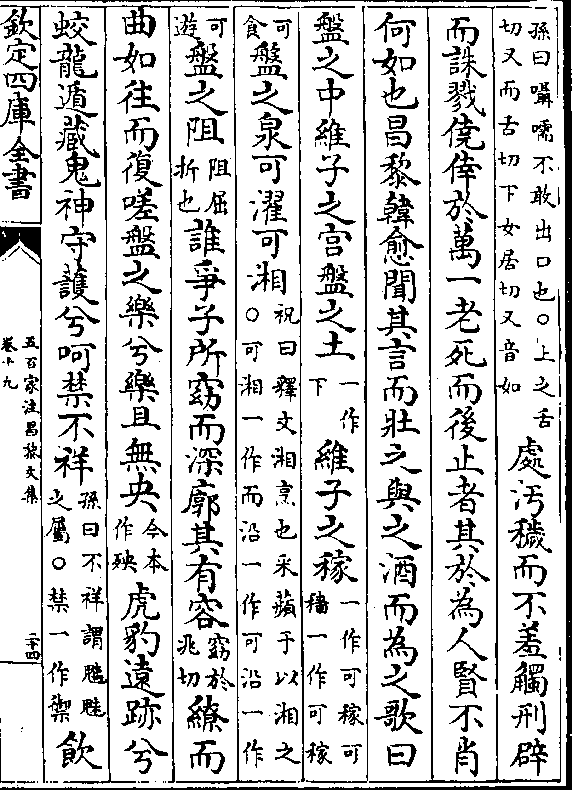 孫曰囁嚅不敢出口也○上之舌切又而舌切下女居切又音如處汚穢而不羞觸刑辟
而誅戮僥倖於萬一老死而後止者其於為人賢不肖
何如也昌黎韓愈聞其言而壯之與之酒而為之歌曰
盤之中維子之宫盤之土一作下維子之稼一作可稼可穡一作可稼
可食盤之泉可濯可湘祝曰釋文湘烹也采蘋于以湘之○可湘一作而沿一作可沿一作
可遊盤之阻阻屈折也誰爭子所窈而深廓其有容窈於兆切繚而
曲如往而復嗟盤之樂兮樂且無央今本作殃虎豹遠跡兮
蛟龍遁藏鬼神守䕶兮呵禁不祥孫曰不祥謂魑魅之屬○禁一作禦飲
欽定四庫全書
五百家注昌黎文集
卷十九
二十四